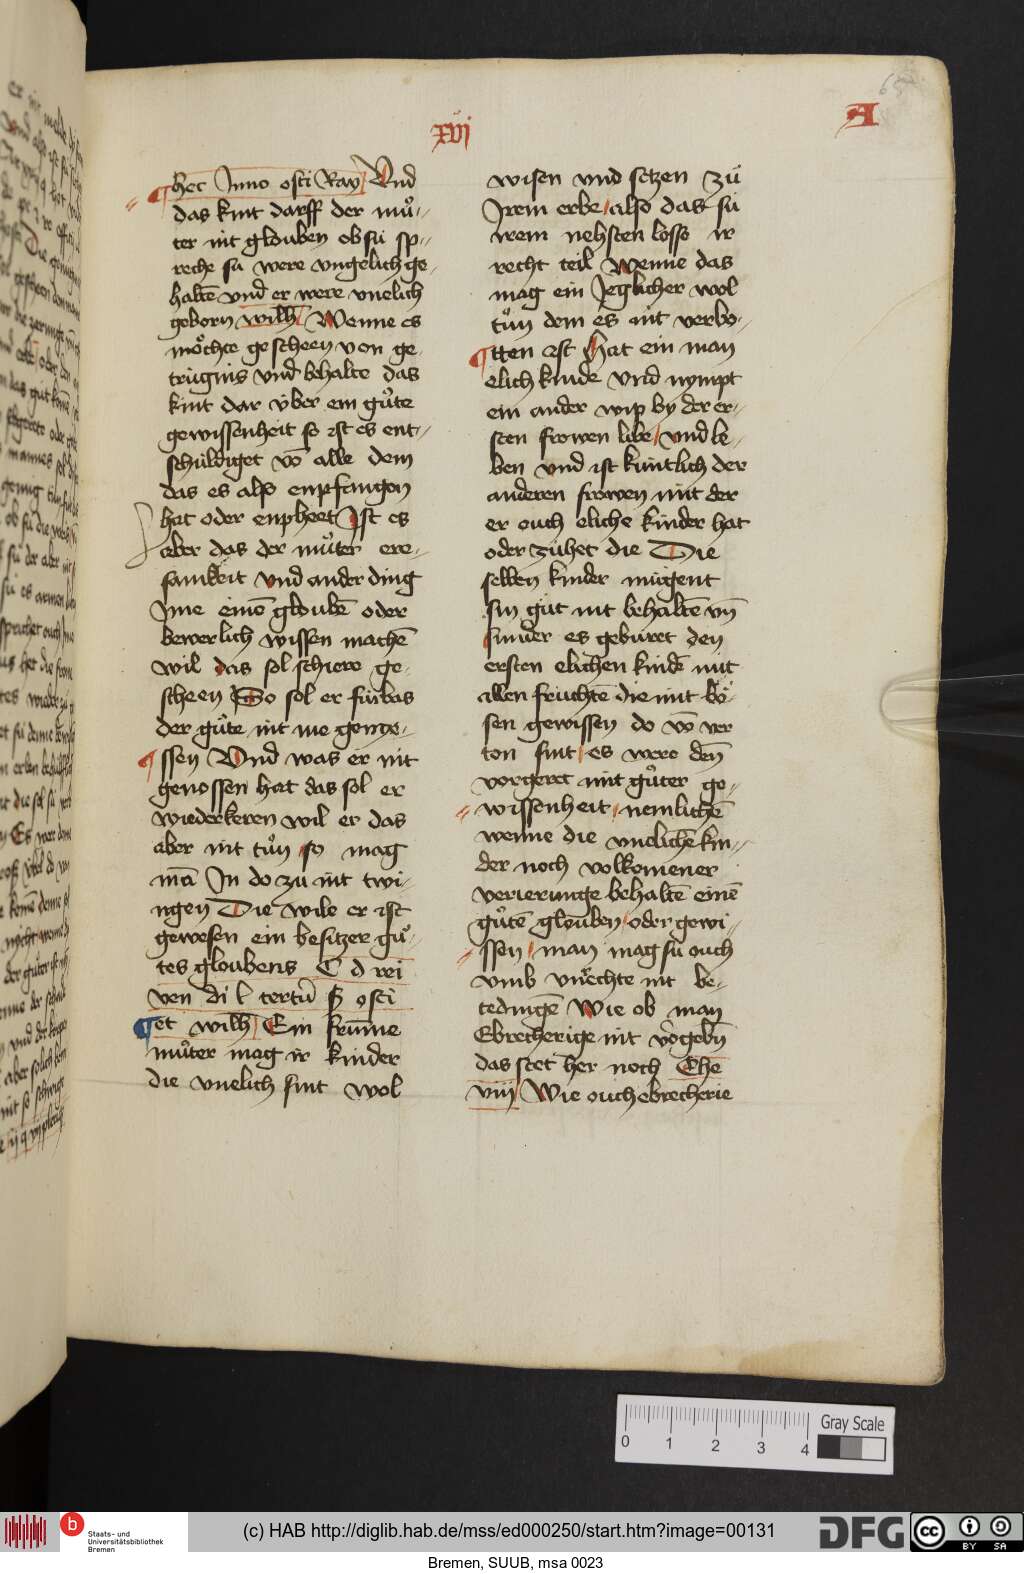 xvj
A
65
hec Inno osti Ray Vnd
das kint darff der mů-
ter nit glouben ob sü sp-
reche sü were vngelich ge-
haltē vnd er were vnelich
geborn wilh Wenne es
moͤchte gescheen von ge-
trügnis vnd behalte das
kint dar v̈ber ein gůte
gewissenheit so ist es ent-
schuldiget vō alle dem
das es also enpfangen
hat oder enpheet Ist es
aber das der můter ere-
samkeit vnd ander ding
Ime einē gloubē oder
bewerlich wissen machē
wil das sol schiere ge-
scheen So sol er fürbas
der gůte nit me genoe-
ssen Vnd was er nit
genossen hat das sol er
wiederkeren wil er das
aber nit tůn so mag
mā In do zü nit twi-
ngen Die wile er ist
gewesen ein besitzer gů-
tes gloubens C d rei
ven di l tertū S osti
et wilh Ein frūme
můter mag ir kinder
die vnelich sint wol
wisen vnd setzen zü
Irem erbe also das sü
irem nehsten losse ir
recht teil Wenne das
mag ein Jeglicher wol
tůn dem es nit verbo-
tten ist Hat ein man
elich kinde vnd nympt
ein ander wip by der er-
sten frowen libe vnd le-
ben vnd ist kuntlich der
anderen frowen mit der
er ouch eliche kinder hat
oder zühet die Die
selben kinder mügent
sin gůt nit behaltē vn̄
sinuer es gebüret den
ersten elichen kindē mit
allen früchtē die mit boͤ-
sen gewissen do vō ver
ton sint es were dēn
vorgeret mit gůter ge-
wissenheit nemlichē
wenne die vnelichē kin-
der noch volkomener
verierunge behaltē einē
gůtē glouben oder gewi-
ssen man mag sü ouch
vmb vnrechte nit be-
tedingē Wie ob man
Ebrecherige nit vorgebn̄
das stet her noch Ehe
viij Wie ouch ebrecherie
0 1 2 3 4
Gray Scale
b
Staats- und
Universitätsbibliothek
Bremen
(c) HAB http://diglib.hab.de/mss/ed000250/start.htm?image=00131
DFG
cc
BY SA
Bremen, SUUB, msa 0023